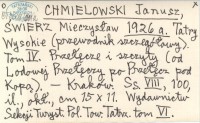 CHMIELOWSKI Janusz,
ŚWIERZ Mieczysław 1926 a. Tatry
Wysokie (przewodnik szczegółowy).
Tom IV. Przełęcze i szczyty (od
Lodowej Przełęczy po Przełęcz pod
Kopą). — Kraków Ss. VIII, 100,
il. okł., cm 15 x 11. Wydawnictwo
Sekcji Turyst. Pol. Tow. Tatrz. tom VI.